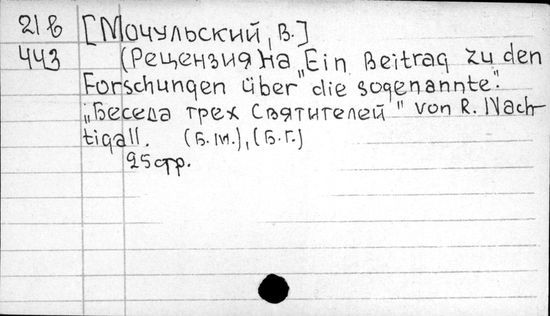 21 в [Мочульский, В.]
443 (Рецензия на „Ein Beitrag zu den
Forschungen über die sogenannte".
„Беседа трех Святителей" von R. Nach-
tigall. (Б.м.), (Б.г.)
25 стр.